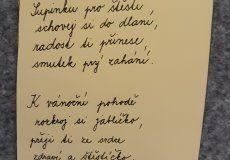 Šupinku pro štěstí,
schovej si do dlaní,
radost ti přinese,
smutek prý zahání.
K vánoční pohodě
rozkroj si jablíčko,
přeji ti ze srdce
zdraví a štěstíčko.